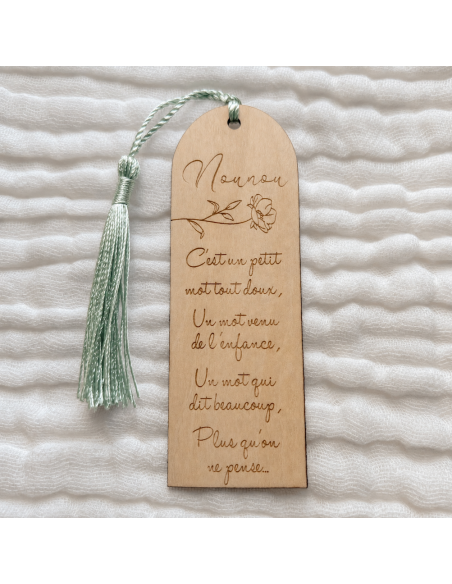 Nounou
C'est un petit
mot tout doux,
Un mot venu
de l'enfance,
Un mot qui
dit beaucoup,
Plus qu'on
ne pense...